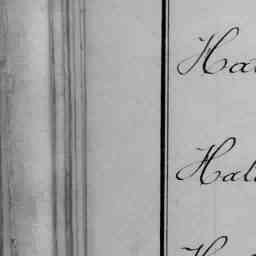 Ha
Hal
H